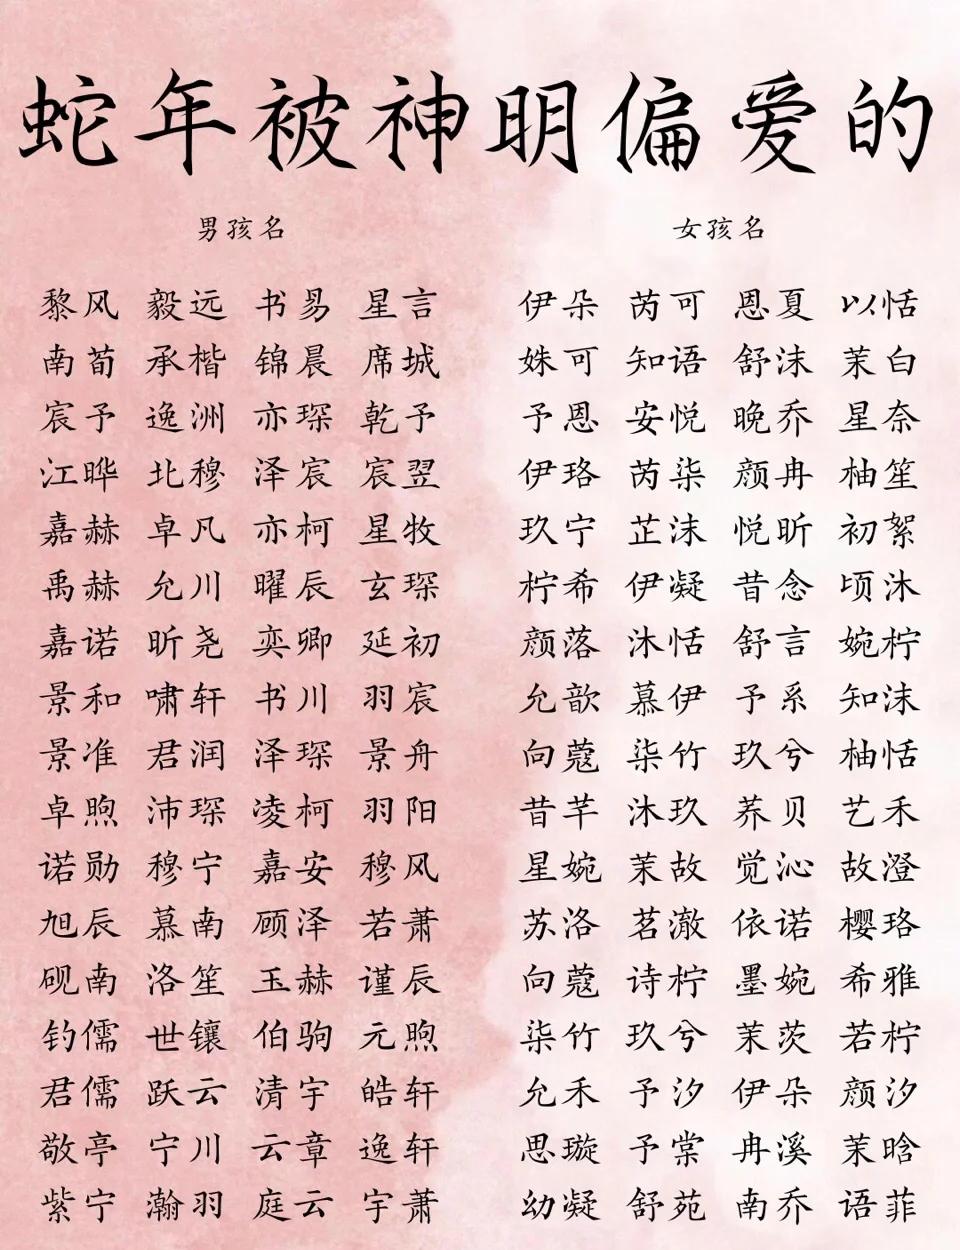 蛇年被神明偏爱的
男孩名 女孩名
黎风 毅远 书易 星言 伊朵 芮可 恩夏 以恬
南荀 承楷 锦晨 席城 姝可 知语 舒沫 茉白
宸予 逸洲 亦琛 乾予 予恩 安悦 晚乔 星奈
江晔 北穆 泽宸 宸翌 伊珞 芮柒 颜冉 柚笙
嘉赫 卓凡 亦柯 星牧 玖宁 芷沫 悦昕 初絮
禹赫 允川 曜辰 玄琛 柠希 伊凝 昔念 顷沐
嘉诺 昕尧 奕卿 延初 颜落 沐恬 舒言 婉柠
景和 啸轩 书川 羽宸 允歆 慕伊 予系 知沫
景准 君润 泽琛 景舟 向蔻 柒竹 玖兮 柚恬
卓煦 沛琛 凌柯 羽阳 昔芊 沐玖 荞贝 艺禾
诺勋 穆宁 嘉安 穆风 星婉 茉故 觉沁 故澄
旭辰 慕南 顾泽 若萧 苏洛 茗澈 依诺 樱珞
砚南 洛笙 玉赫 谨辰 向蔻 诗柠 墨婉 希雅
钧儒 世镶 伯驹 元煦 柒竹 玖兮 茉茨 若柠
君儒 跃云 清宇 皓轩 允禾 予汐 伊朵 颜汐
敬亭 宁川 云章 逸轩 思璇 予棠 冉溪 茉晗
紫宁 瀚羽 庭云 宇萧 幼凝 舒苑 南乔 语菲